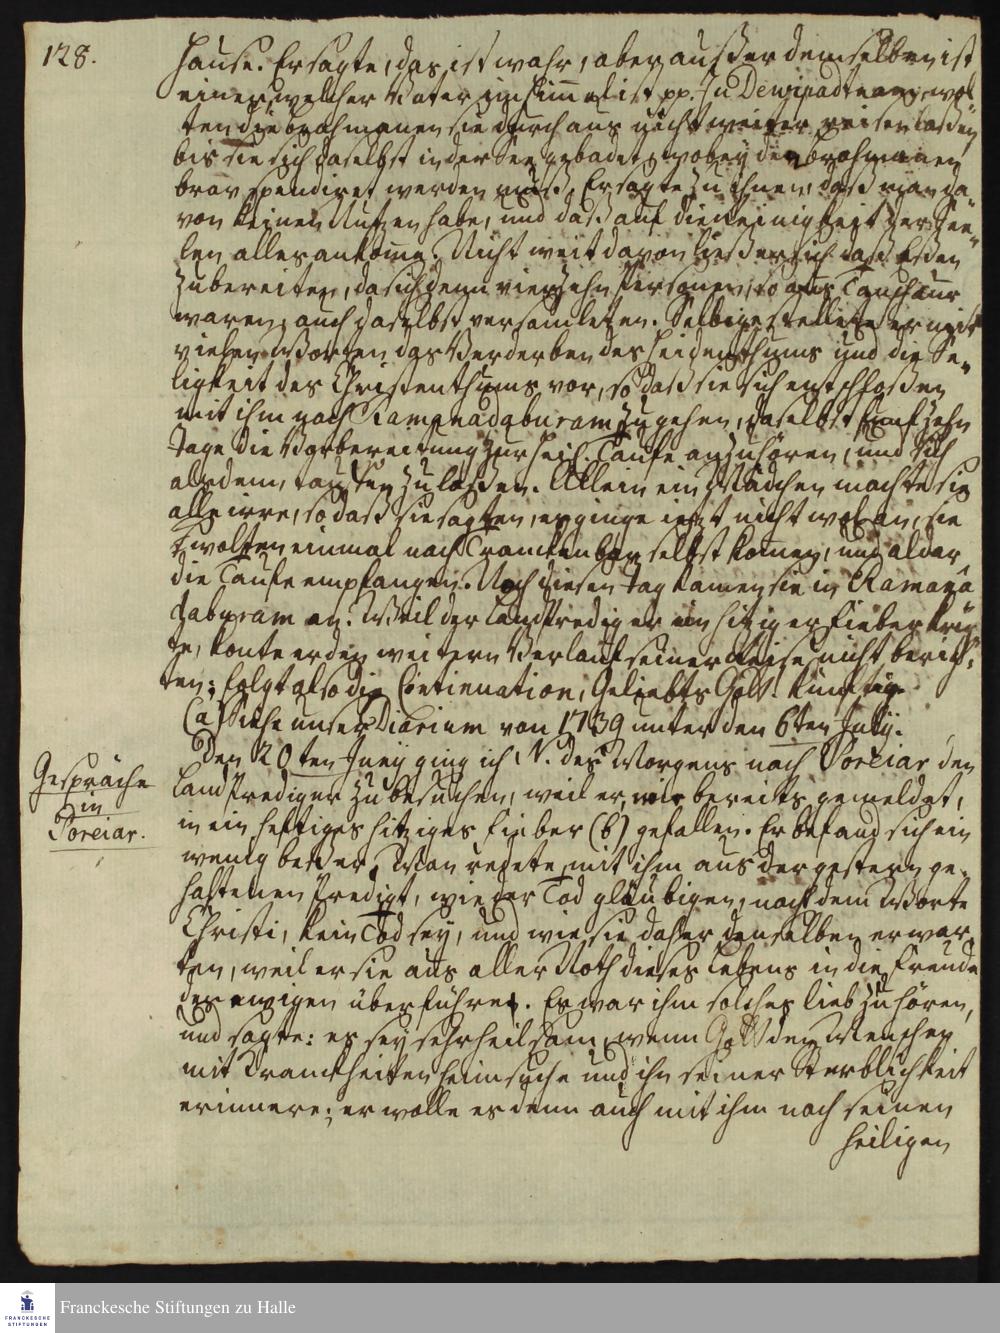 128.
Hause. Er sagte, das ist wahr, aber außer demselben ist
einer, welcher Vater im Himmel ist pp. In Dewipadtnam wol
ten die brahmanen sie durchaus nicht weiter reisen laßen,
bis sie sich daselbst in der See gebadet, wobey den brahmanen
brav spendiret werden muß. Er sagte zu ihnen, daß man da
von keinen Nutzen habe, und daß auf die Reinigkeit der See-
len alles ankome. Nicht weit davon ließ er sich das Eßen
zubereiten, da sich denn vierzehn Personen, so aus Tanschaur
waren, auch daselbst versamleten. Selbigen stellete er mit
vielen Worten das Verderben des Heidenthums und die Se-
ligkeit des Christenthums vor, so daß sie sich entschloßen
mit ihm nach Ramanadaburam zu gehen, daselbst funfzehn
Tage die Vorbereitung zur heil. Taufe anzuhören, und sich
alsdenn taufen zu laßen. Allein ein Mädchen machte sie
alle irre, so daß sie sagten, es ginge ietzt nicht wol an, sie
wolten einmal nach Tranckenbar selbst komen, und aldar
die Taufe empfangen. Noch diesen Tag kamen sie in Ramana
daburam an. Weil der Landprediger ein hitziger Fieber krieg
te, konte er den weitern Verlauf seiner Reise nicht berich-
ten; folgt also die Continuation, Geliebts Gott! künftig.
(a) Siehe unser Diarium von 1739 unter den 6ten Julij.
Gespräche
in
Poreiar.
Den 20ten Junij ging ich N. des Morgens nach Poreiar den
Landprediger zu besuchen, weil er, wie bereits gemeldet,
in ein heftiges hitziges Fieber (b) gefallen. Er befand sich ein
wenig beßer. Man redete mit ihm aus der gestern ge-
haltenen Predigt, wie der Tod gläubigen, nach dem Worte
Christi, kein Tod sey, und wie sie daher denselben erwar
ten, weil er sie aus aller Noth dieses Lebens in die Freude
des ewigen überführet. Es war ihm solches lieb zu hören,
und sagte: es sey sehr heilsam, wenn Gott den Menschen
mit Kranckheiten heimsuche und ihn seiner Sterblichkeit
erinnere; er wolle es denn auch mit ihm nach seinen
heiligen
FRANCKESCHE
STIFTUNGEN
Franckesche Stiftungen zu Halle